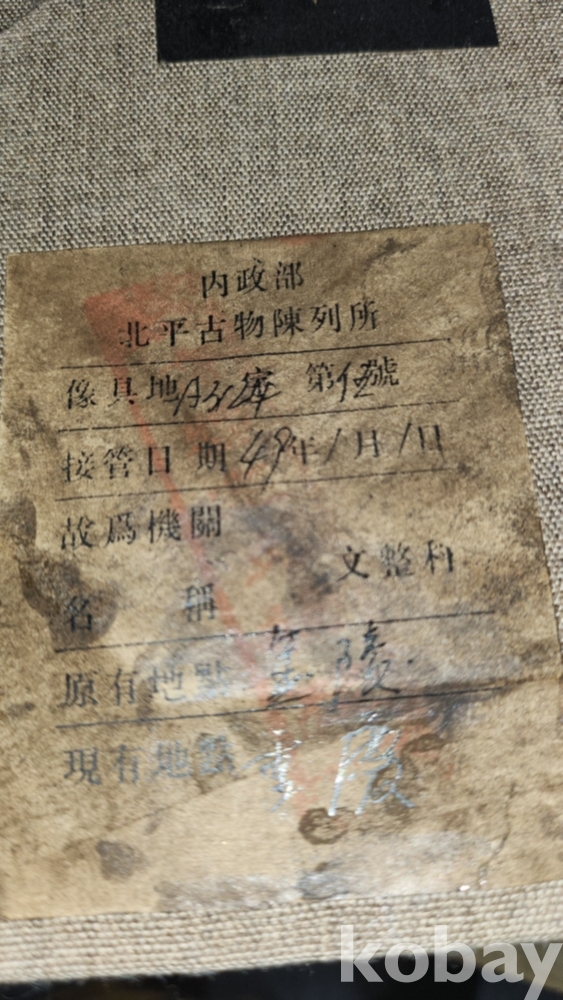 内政部
北平古物陳列所
傢具地 第伍號
接管日期 49年1月1日
故爲機關
文整科
名 稱
原有地點
現有地點
kobay